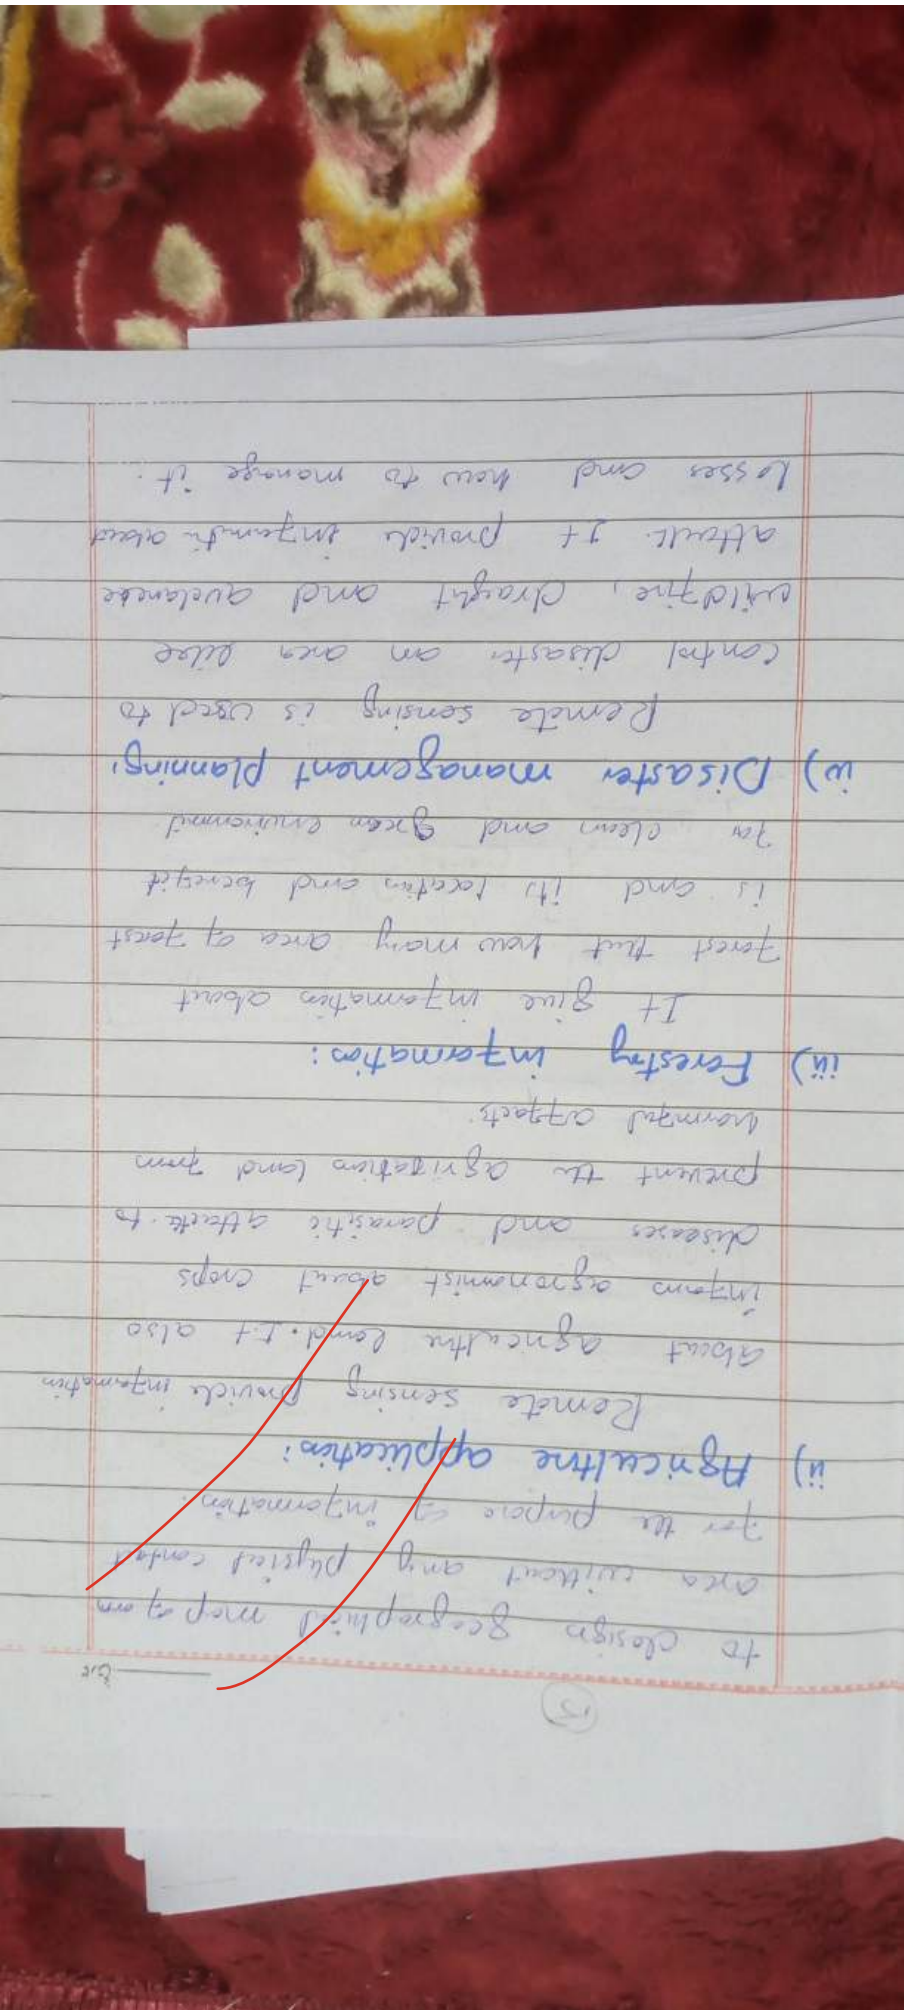 15
to design geographical map of an
area without any physical contact
for the purpose of information.
ii) Agriculture application:
Remote sensing provide information
about agriculture land. It also
inform agronomist about crops
diseases and parasitic attack to
prevent the agrisation land from
harmful affects.
iii) Forestry information:
It give information about
forest that how many area of forest
is and its location and benefit
for clean and green environment
iv) Disaster management planning:
Remote sensing is used to
control disaster an area like
wildfire, draught and avelanche
attack. It provide informatn about
losses and how to manage it.